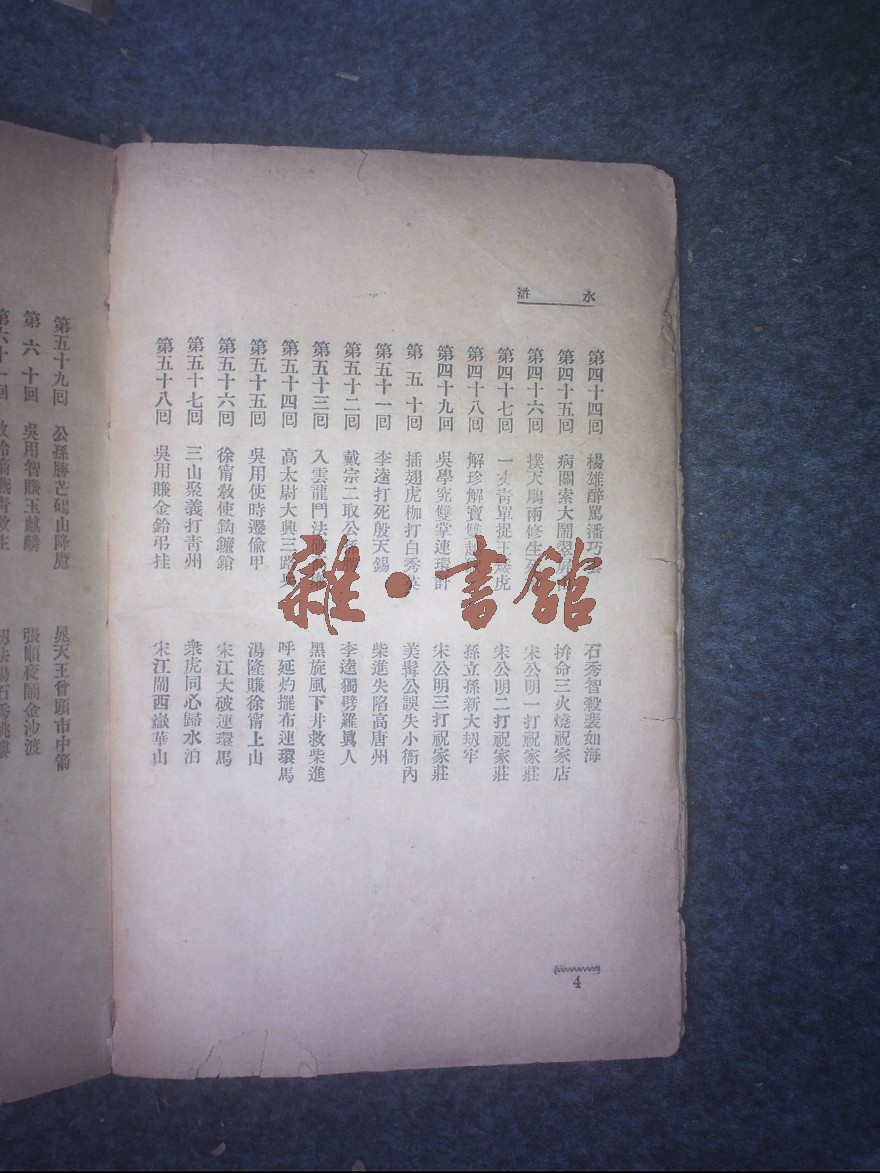 水滸
第四十四回 楊雄醉罵潘巧 石秀智殺裴如海
第四十五回 病關索大鬧翠屏 拚命三火燒祝家店
第四十六回 撲天鵰兩修生 宋公明一打祝家莊
第四十七回 一丈青單捉王矮虎 宋公明二打祝家莊
第四十八回 解珍解寶雙越 孫立孫新大刼牢
第四十九回 吳學究雙掌連環計 宋公明三打祝家莊
第五十回 插翅虎枷打白秀英 美髯公誤失小衙內
第五十一回 李逵打死殷天錫 柴進失陷高唐州
第五十二回 戴宗二取公孫 李逵獨劈羅眞人
第五十三回 入雲龍鬥法 黑旋風下井救柴進
第五十四回 高太尉大興三路 呼延灼擺布連環馬
第五十五回 吳用使時遷偸甲 湯隆賺徐甯上山
第五十六回 徐甯敎使鈎鐮鎗 宋江大破連環馬
第五十七回 三山聚義打青州 衆虎同心歸水泊
第五十八回 吳用賺金鈴弔挂 宋江鬧西嶽華山
4
第五十九回 公孫勝芒碭山降魔 晁天王曾頭市中箭
第六十回 吳用智賺玉麒麟 張順夜鬧金沙渡
雜·書館